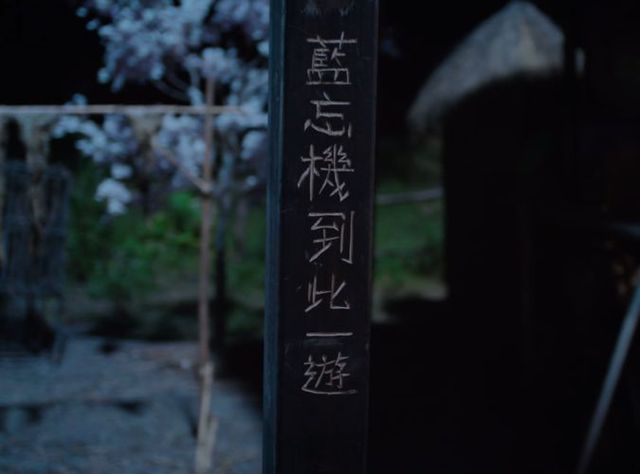 藍忘機到此一遊